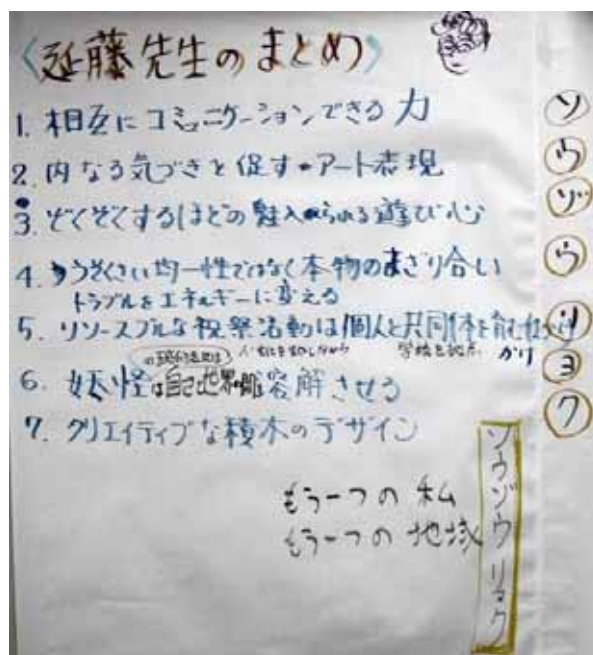 〈延藤先生のまとめ〉
1. 相互にコミュニケーションできる力
2. 内なる気づきを促すアート表現
3. ぞくぞくするほどの魅入られる遊び心
4. うそくさい均一性ではなく本物のまざり合い
トラブルをエネルギーに変える
5. リソースフルな祝祭活動は個人と共同体を育む
学校を拠点
6. 妖怪は自己と世界の溶解させる
7. クリエイティブな積木のデザイン
もう一つの 私
もう一つの 地域
ソウゾウリョク
ソ
ウ
ゾ
ウ
リ
ヨ
ク